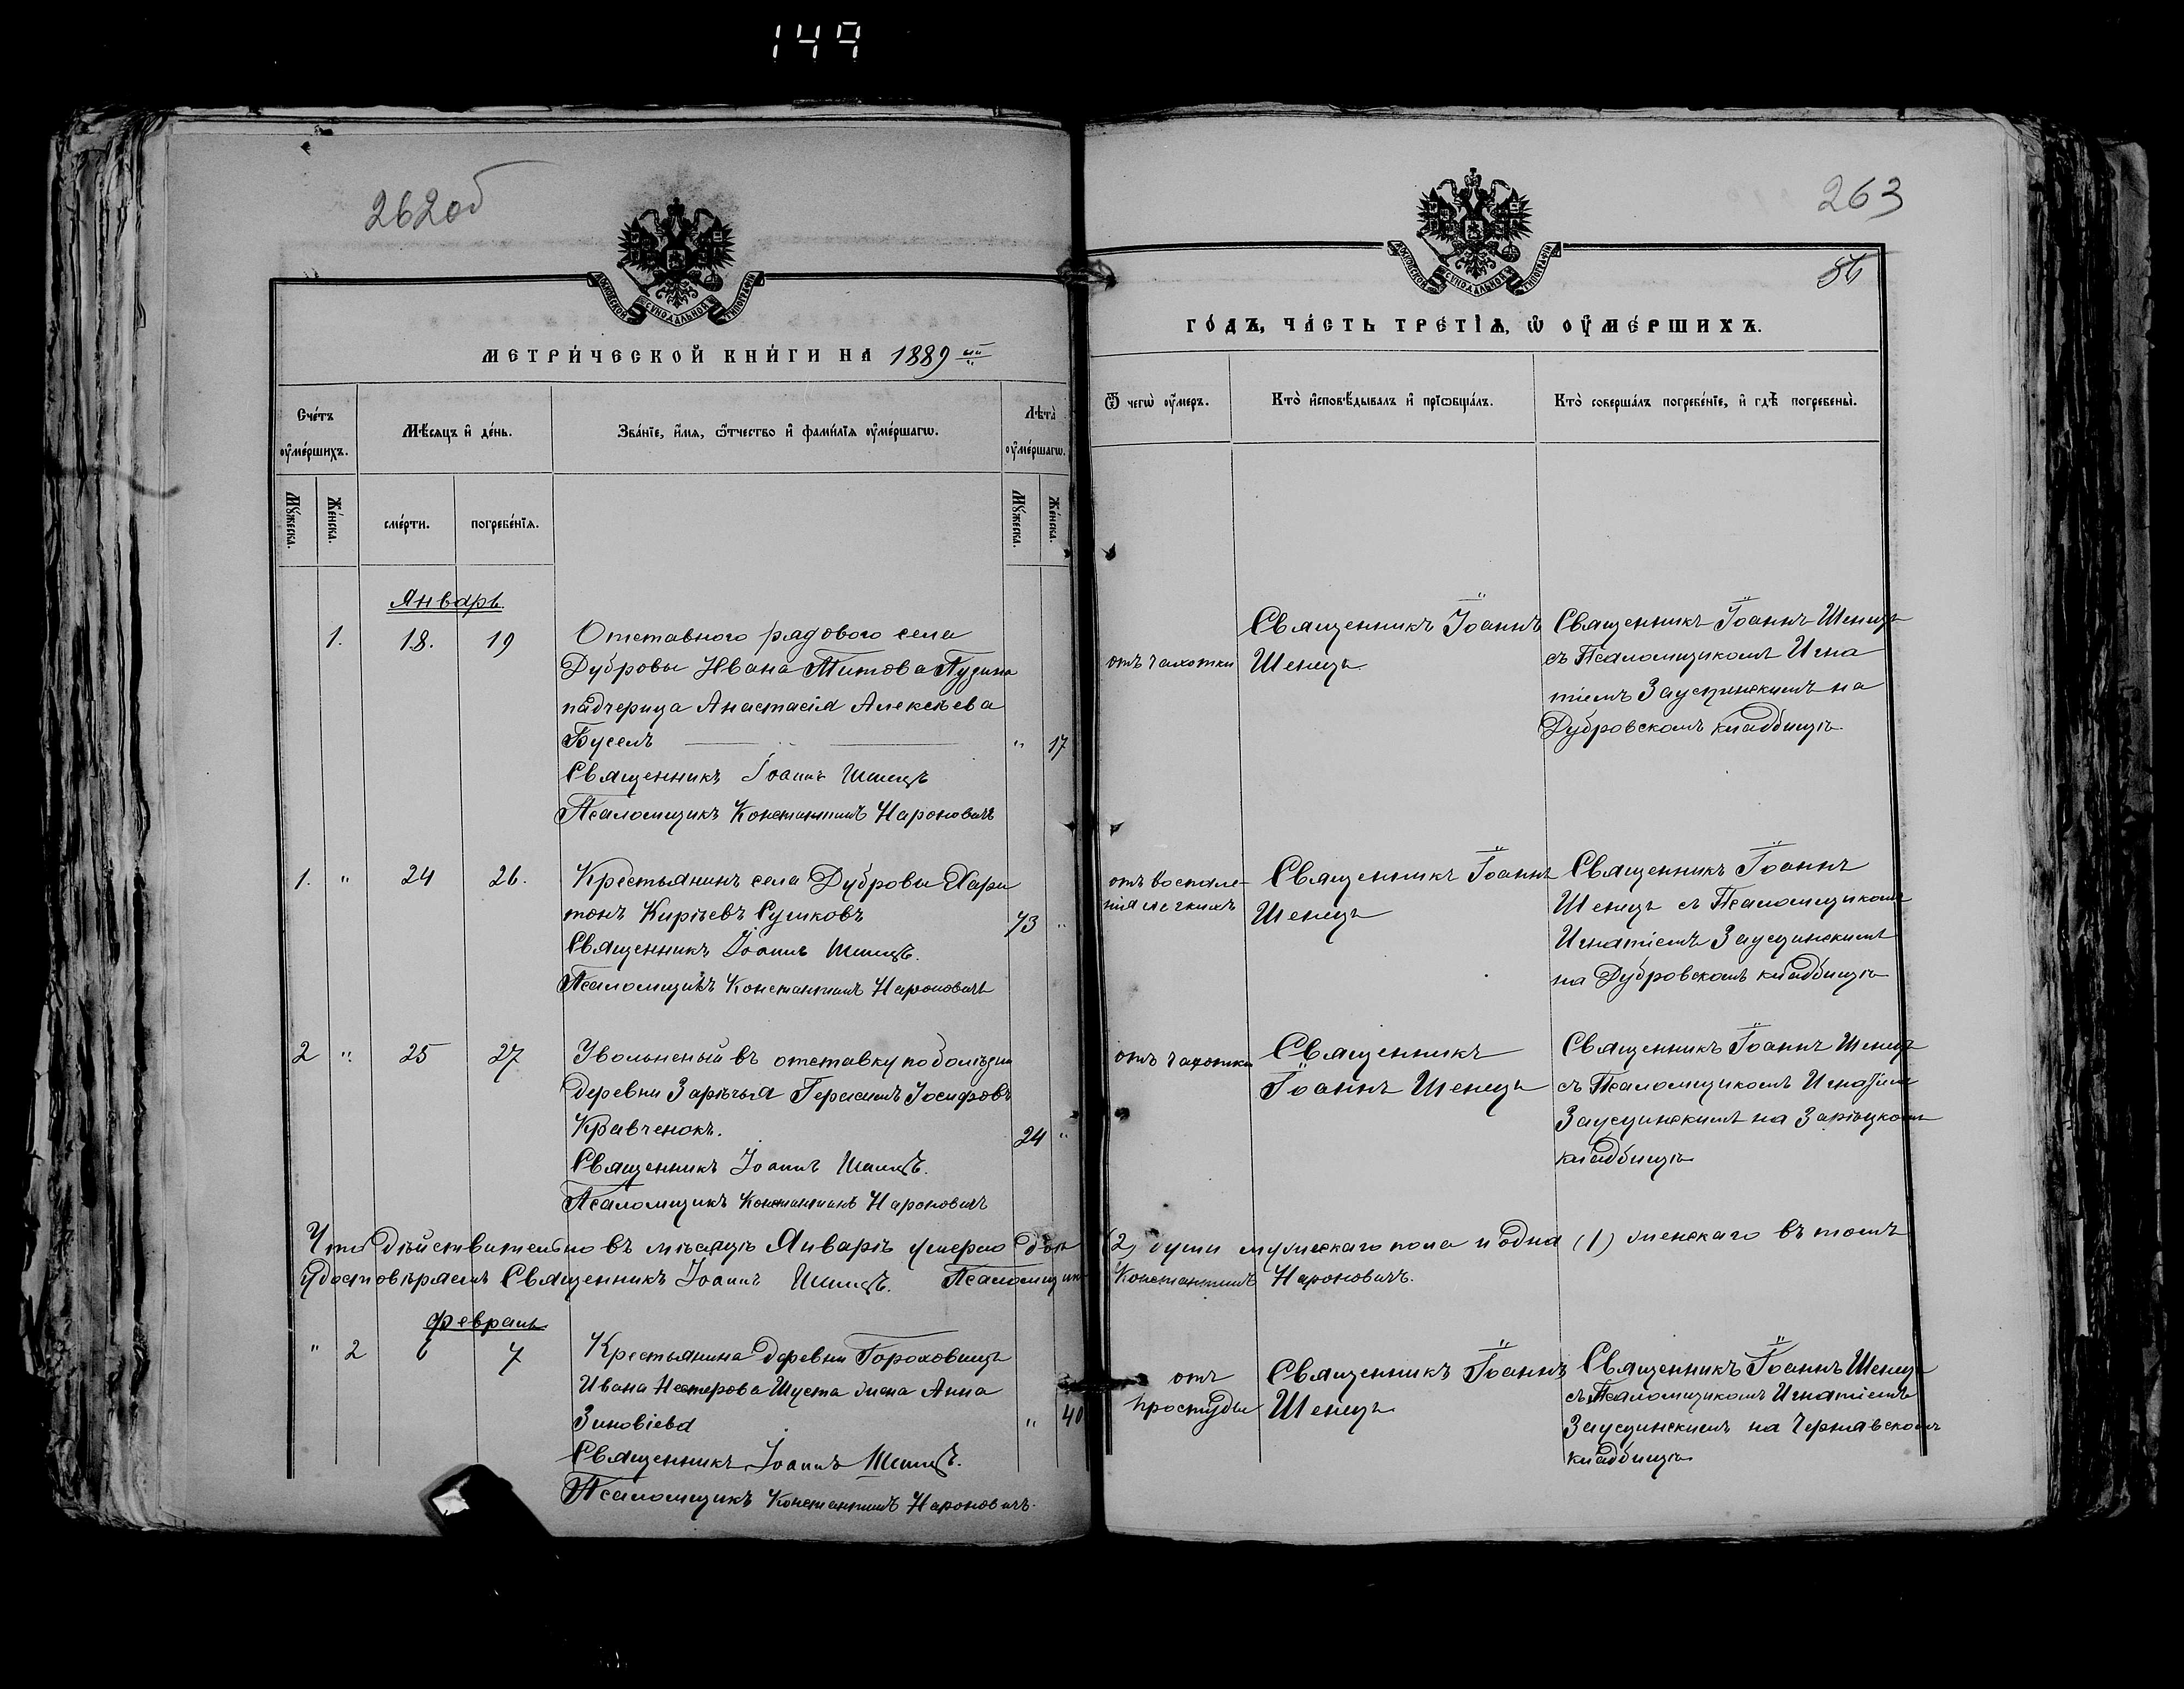 149
262об
МОСКОВСКОЙ СУНОДАЛЬНОЙ ТИПОГРАФІИ
МЕТРИ́ЧЕСКОЙ КНИ́ГИ НА 1889 ый
Сче́тъ оу҆ме́ршихъ.
Мѣ́сяцъ и҆ де́нь.
Зва́нїе, и҆́мя, ѻ҆́тчество и҆ фами́лїя оу҆ме́ршагѡ.
Лѣта̀ оу҆ме́ршагѡ.
Мꙋ́жеска.
Же́нска.
сме́рти.
погребе́нїѧ.
Мꙋ́жеска.
Же́нска.
Январь
1. 18. 19 Отставного рядового села
Дубровы Ивана Титова Пузина
падчерица Анастасія Алексѣева
Буселъ " 17
Священникъ Іоаннъ Шенецъ
Псаломщикъ Константинъ Нароновичъ
1. " 24 26. Крестьянинъ села Дубровы Хари
тонъ Кирѣевъ Сушковъ 73 "
Священникъ Іоаннъ Шенецъ.
Псаломщикъ Константинъ Нароновичъ
2 " 25 27 Уволеный въ отставку по болѣзни
деревни Зарѣчья Герасимъ Іосифовъ
Кравченокъ. 24 "
Священникъ Іоаннъ Шенецъ.
Псаломщикъ Константинъ Нароновичъ
Что дѣйствительно въ мѣсяцѣ Январѣ умерло двѣ
удостовѣряемъ Священникъ Іоаннъ Шенецъ. Псаломщикъ
Февраль
" 2 6 7 Крестьянина деревни Гороховищъ
Ивана Нестерова Шуста жена Анна
Зиновіева " 40
Священникъ Іоаннъ Шенецъ.
Псаломщикъ Константинъ Нароновичъ.
263
МОСКОВСКОЙ СУНОДАЛЬНОЙ ТИПОГРАФІИ
ГО́ДЪ, ЧА́СТЬ ТРЕ́ТЇѦ, Ѡ҆ ОУ҆МЕ́РШИХЪ.
Ѿ чегѡ̀ оу҆́меръ.
Кто̀ и҆сповѣ́дывалъ и҆ прїѡбща́лъ.
Кто̀ соверша́лъ погребе́нїе, и҆ гдѣ̀ погребены̀.
отъ чахотки
Священникъ Іоаннъ
Шенецъ
Священникъ Іоаннъ Шенецъ
съ Псаломщикомъ Игна
тіемъ Заусцинскимъ на
Дубровскомъ кладбищѣ.
отъ воспале-
нія легкихъ
Священникъ Іоаннъ
Шенецъ
Священникъ Іоаннъ
Шенецъ съ Псаломщикомъ
Игнатіемъ Заусцинскимъ
на Дубровскомъ кладбищѣ
отъ чахотки
Священникъ
Іоаннъ Шенецъ
Священникъ Іоаннъ Шенецъ
съ Псаломщикомъ Игнатіем
Заусцинскимъ на Зарѣцкомъ
кладбищѣ
(2) души мужескаго пола и одна (1) женскаго въ томъ
Константинъ Нароновичъ.
отъ
простуды
Священникъ Іоаннъ
Шенецъ
Священникъ Іоаннъ Шенецъ
съ Псаломщикомъ Игнатіемъ
Заусцинскимъ на Чернявскомъ
кладбищѣ